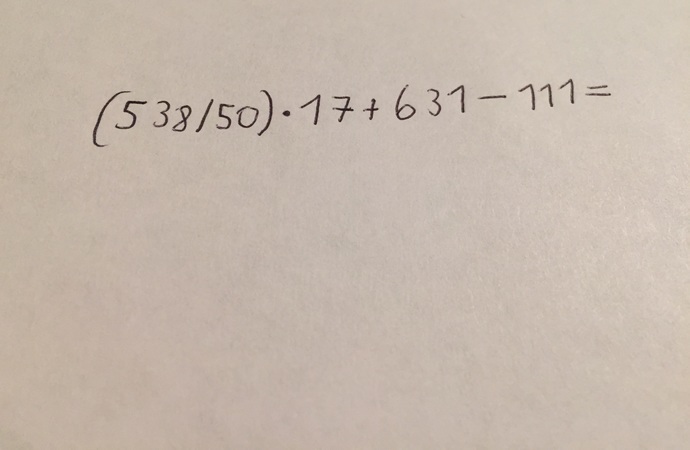 (538/50)·17+631-111=